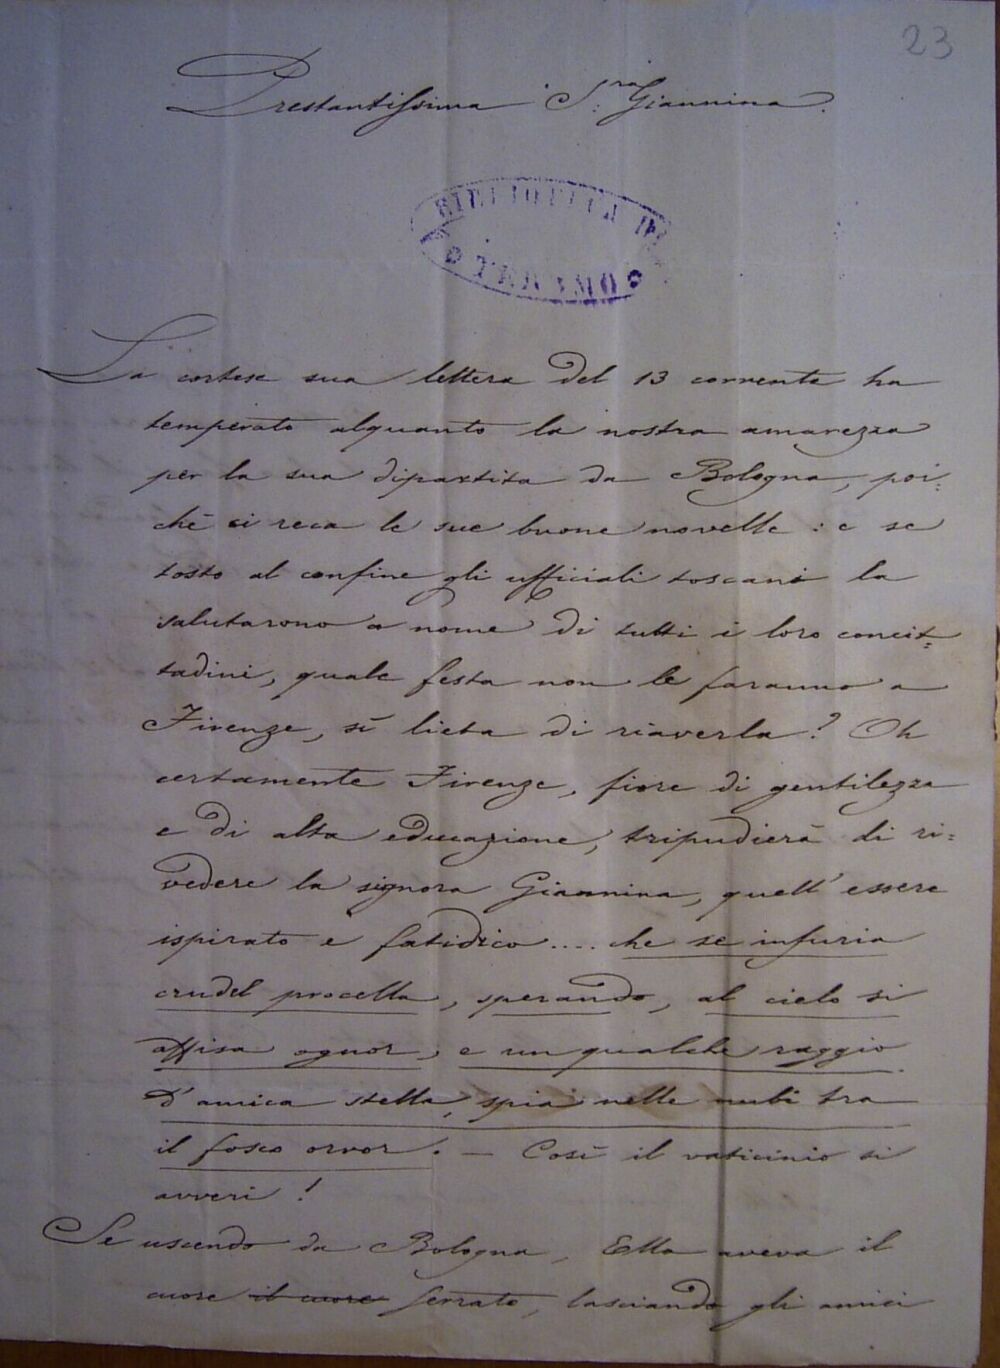 23
Prestantissima S.ra Giannina.
BIBLIOTECA DI
TERAMO
La cortese sua lettera del 13 corrente ha
temperato alquanto la nostra amarezza
per la sua dipartita da Bologna, poi=
chè ci reca le sue buone novelle: e se
tosto al confine gli ufficiali toscani la
salutarono a nome di tutti i loro concit=
tadini, quale festa non le faranno a
Firenze, sì lieta di riaverla? Oh
certamente Firenze, fiore di gentilezza
e di alta educazione, tripudierà di ri=
vedere la signora Giannina, quell'essere
ispirato e fatidico.... che se infuria
crudel procella, sperando, al cielo si
affisa ognor, e un qualche raggio
d'amica stella, spia nelle nubi tra
il fosco orror. — Così il vaticinio si
avveri!
Se uscendo da Bologna, Ella aveva il
cuore il cuore serrato, lasciando gli amici